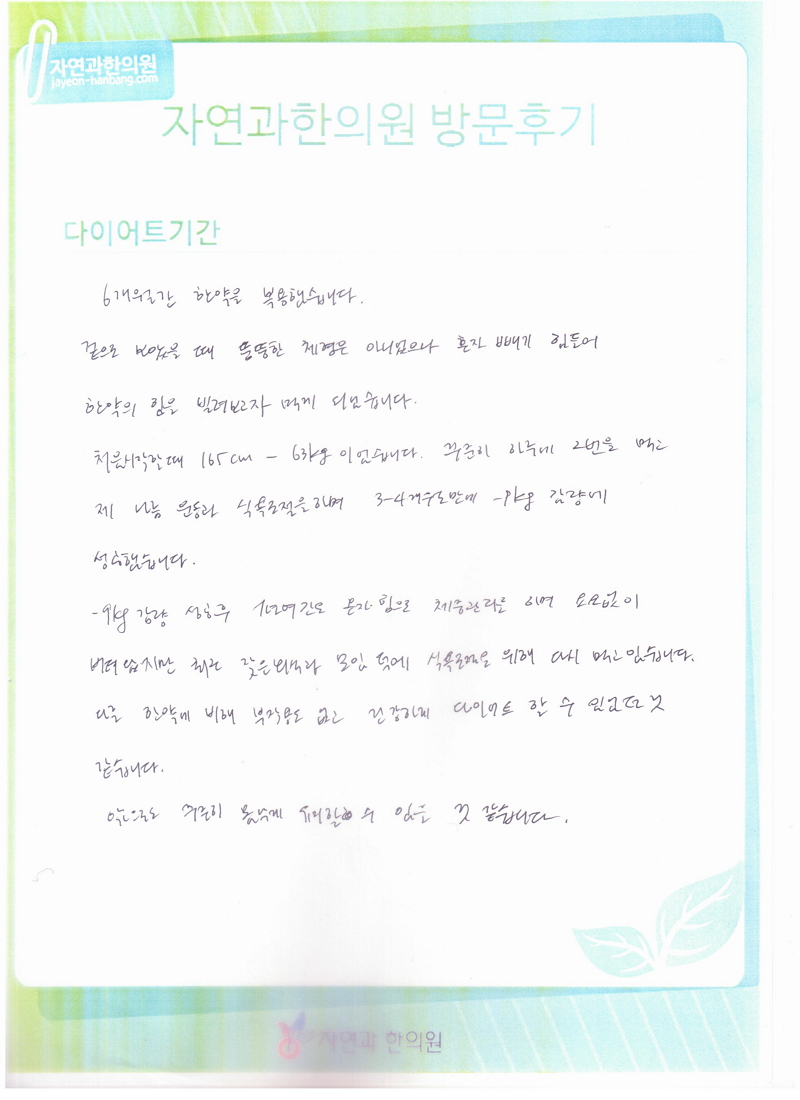 자연과한의원
jayeon-hanbang.com
자연과한의원 방문후기
다이어트기간
6개월간 한약을 복용했습니다.
겉으로 보았을 때 뚱뚱한 체형은 아니었으나 혼자 빼기 힘들어
한약의 힘을 빌려보고자 먹게 되었습니다.
처음시작할때 165cm - 63kg 이었습니다. 꾸준히 하루에 2번을 먹고
제 나름 운동과 식욕조절을하며 3-4개월만에 -9kg 감량에
성공했습니다.
-9kg 감량 성공후 1년여간 혼자 힘으로 체중관리를 하며 요요없이
버텨왔지만 최근 잦은외식과 모임 덕에 식욕조절을 위해 다시 먹고있습니다.
다른 한약에 비해 부작용도 없고 건강하게 다이어트 할 수 있는 것
같습니다.
앞으로도 꾸준히 몸무게 유지할 수 있을 것 같습니다.
자연과 한의원